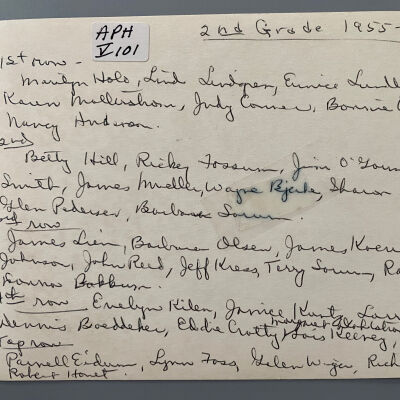 APH
V101
2nd Grade 1955-
1st row -
Marilyn Hols, Lind Lindgren, Eunice Lundl
Karen Mollerstrom, Judy Conner, Bonnie
Nancy Anderson.
2nd
Betty Hill, Rickey Fossum, Jim O'Gorm
Smith, James Mudler, Wayne Bjerke, Sharon
Glen Pederson, Barbara Sorum.
3rd row
James Lien, Barbara Olsen, James Koen
Johnson, John Reed, Jeff Kress, Terry Sorum, Ro
Donna
4th row Evelyn Kilen, Janice Kuntz, Lorr
Dennis Boeddeker, Eddie Crotty, Lois Keeney,
Top row
Parnell Eidum, Lynn Foss, Helen Wiger, Rich
Robert Honet.